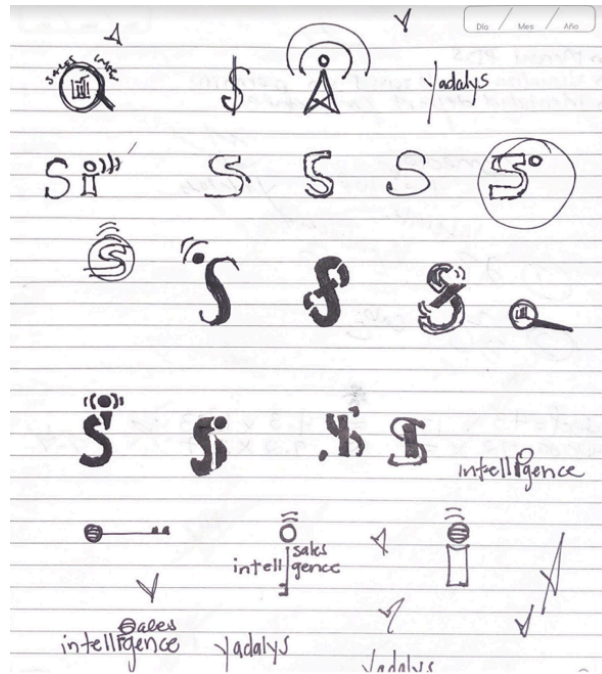 Día / Mes / Año
sales
$
Yadalys
Si
S S S S
S
S
S
intelligence
sales
intelligence
sales
intelligence
Yadalys
Yadalys